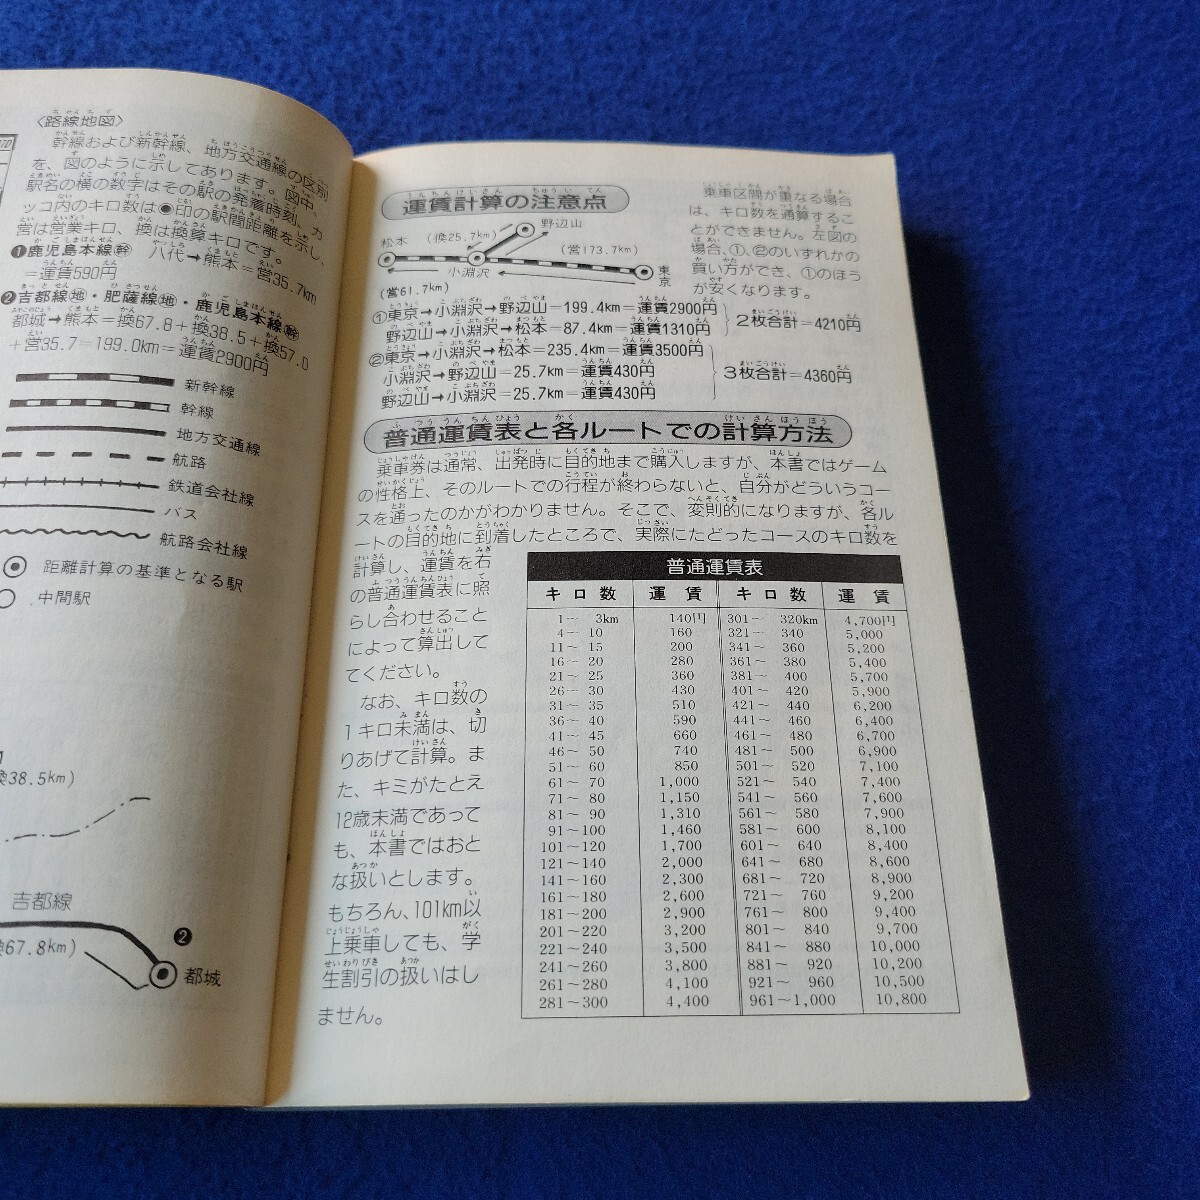 〈路線地図〉
幹線および新幹線、地方交通線の区別
を、図のように示してあります。図中、
駅名の横の数字はその駅の発着時刻、カ
ッコ内のキロ数は◉印の駅間距離を示し、
営は営業キロ、換は換算キロです。
❶鹿児島本線㊩ 八代→熊本=営35.7km
=運賃590円
❷吉都線・肥薩線・鹿児島本線
都城→熊本=換67.8+換38.5+換57.0
+営35.7=199.0km=運賃2900円
新幹線
幹線
地方交通線
航路
鉄道会社線
バス
航路会社線
距離計算の基準となる駅
中間駅
換38.5km)
吉都線
換67.8km)
❷
都城
運賃計算の注意点
野辺山
松本
(換25.7km)
(営173.7km)
小淵沢
東京
(営61.7km)
乗車区間が重なる場合
は、キロ数を通算するこ
とができません。左図の
場合、①、②のいずれかの
買い方ができ、①のほう
が安くなります。
①東京→小淵沢→野辺山=199.4km=運賃2900円
野辺山→小淵沢→松本=87.4km=運賃1310円
2枚合計=4210円
②東京→小淵沢→松本=235.4km=運賃3500円
小淵沢→野辺山=25.7km=運賃430円
野辺山→小淵沢=25.7km=運賃430円
3枚合計=4360円
普通運賃表と各ルートでの計算方法
乗車券は通常、出発時に目的地まで購入しますが、本書ではゲーム
の性格上、そのルートでの行程が終わらないと、自分がどういうコー
スを通ったのかがわかりません。そこで、変則的になりますが、各ル
ートの目的地に到着したところで、実際にたどったコースのキロ数を
計算し、運賃を右
の普通運賃表に照
らし合わせること
によって算出して
てください。
なお、キロ数の
1キロ未満は、切
りあげて計算。ま
た、キミがたとえ
12歳未満であって
も、本書ではおと
な扱いとします。
もちろん、101km以
上乗車しても、学
生割引の扱いはし
ません。
普通運賃表
キロ数 運賃 キロ数 運賃
1～ 3km 140円 301～ 320km 4,700円
4～ 10 160 321～ 340 5,000
11～ 15 200 341～ 360 5,200
16～ 20 280 361～ 380 5,400
21～ 25 360 381～ 400 5,700
26～ 30 430 401～ 420 5,900
31～ 35 510 421～ 440 6,200
36～ 40 590 441～ 460 6,400
41～ 45 660 461～ 480 6,700
46～ 50 740 481～ 500 6,900
51～ 60 850 501～ 520 7,100
61～ 70 1,000 521～ 540 7,400
71～ 80 1,150 541～ 560 7,600
81～ 90 1,310 561～ 580 7,900
91～100 1,460 581～ 600 8,100
101～120 1,700 601～ 640 8,400
121～140 2,000 641～ 680 8,600
141～160 2,300 681～ 720 8,900
161～180 2,600 721～ 760 9,200
181～200 2,900 761～ 800 9,400
201～220 3,200 801～ 840 9,700
221～240 3,500 841～ 880 10,000
241～260 3,800 881～ 920 10,200
261～280 4,100 921～ 960 10,500
281～300 4,400 961～1,000 10,800